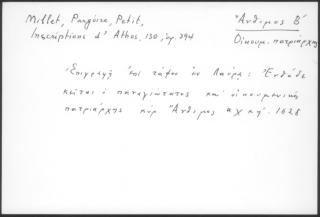 Millet, Pargoire, Petit,
Inscriptions d' Athos, 130, ἀρ. 394
Ἄνθιμος Β'
Οἰκουμ. πατριάρχης
Ἐπιγραφὴ ἐπὶ τάφου ἐν Λαύρᾳ: Ἐνθάδε
κεῖται ὁ παναγιώτατος καὶ οἰκουμενικὸς
πατριάρχης κὺρ Ἄνθιμος αχκή. 1628